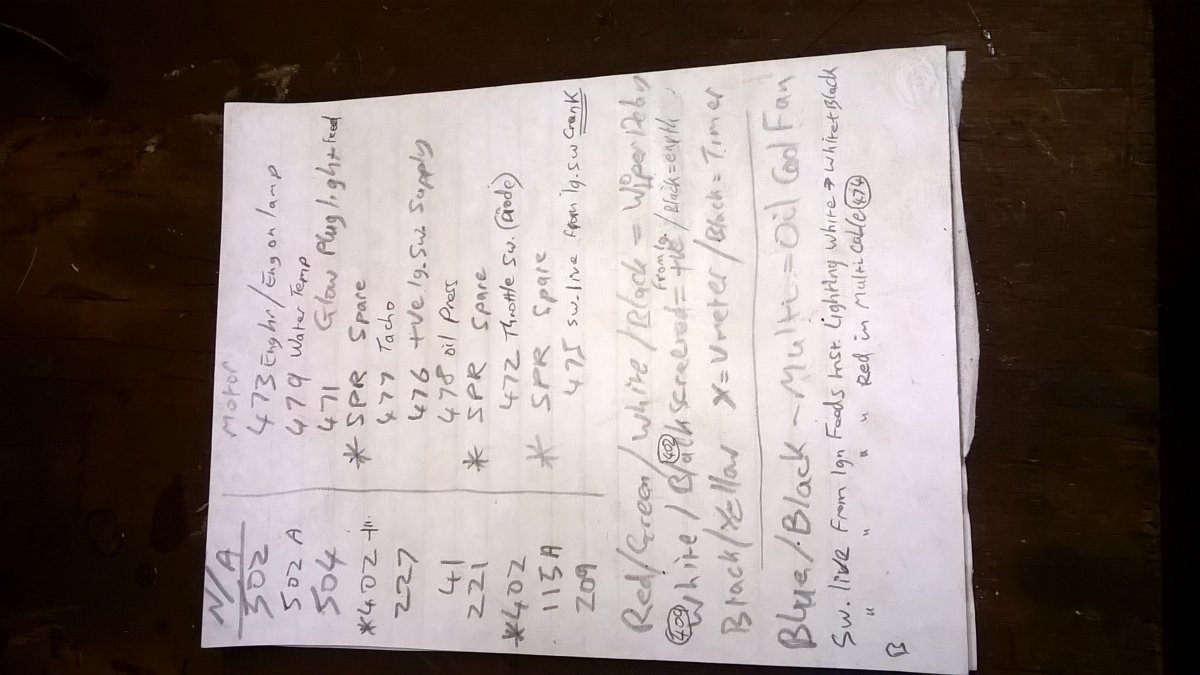 N/A Motor
502 473 Eng hr/Eng on lamp
502 A 479 Water Temp
504 471 Glow Plug light + feed
*402 * SPR Spare
227 477 Tacho
476 +Ve Ig. Sw. Supply
41 478 oil Press
221 * SPR Spare
*402 472 Throttle Sw. (Diode)
113A * SPR Spare
209 475 Sw. live from Ig. Sw Crank
Red/Green/White/Black = Wiper
409 402 From Ig.
White/Black Screened = +Ve/Black = earth
Black/Yellow *=Vmeter/Black = Timer
Blue/Black - Multi = Oil Cool Fan
Sw. live From Ign Feeds Inst. Lighting White → White + Black
" " " " Red in Multi Cable 474
B